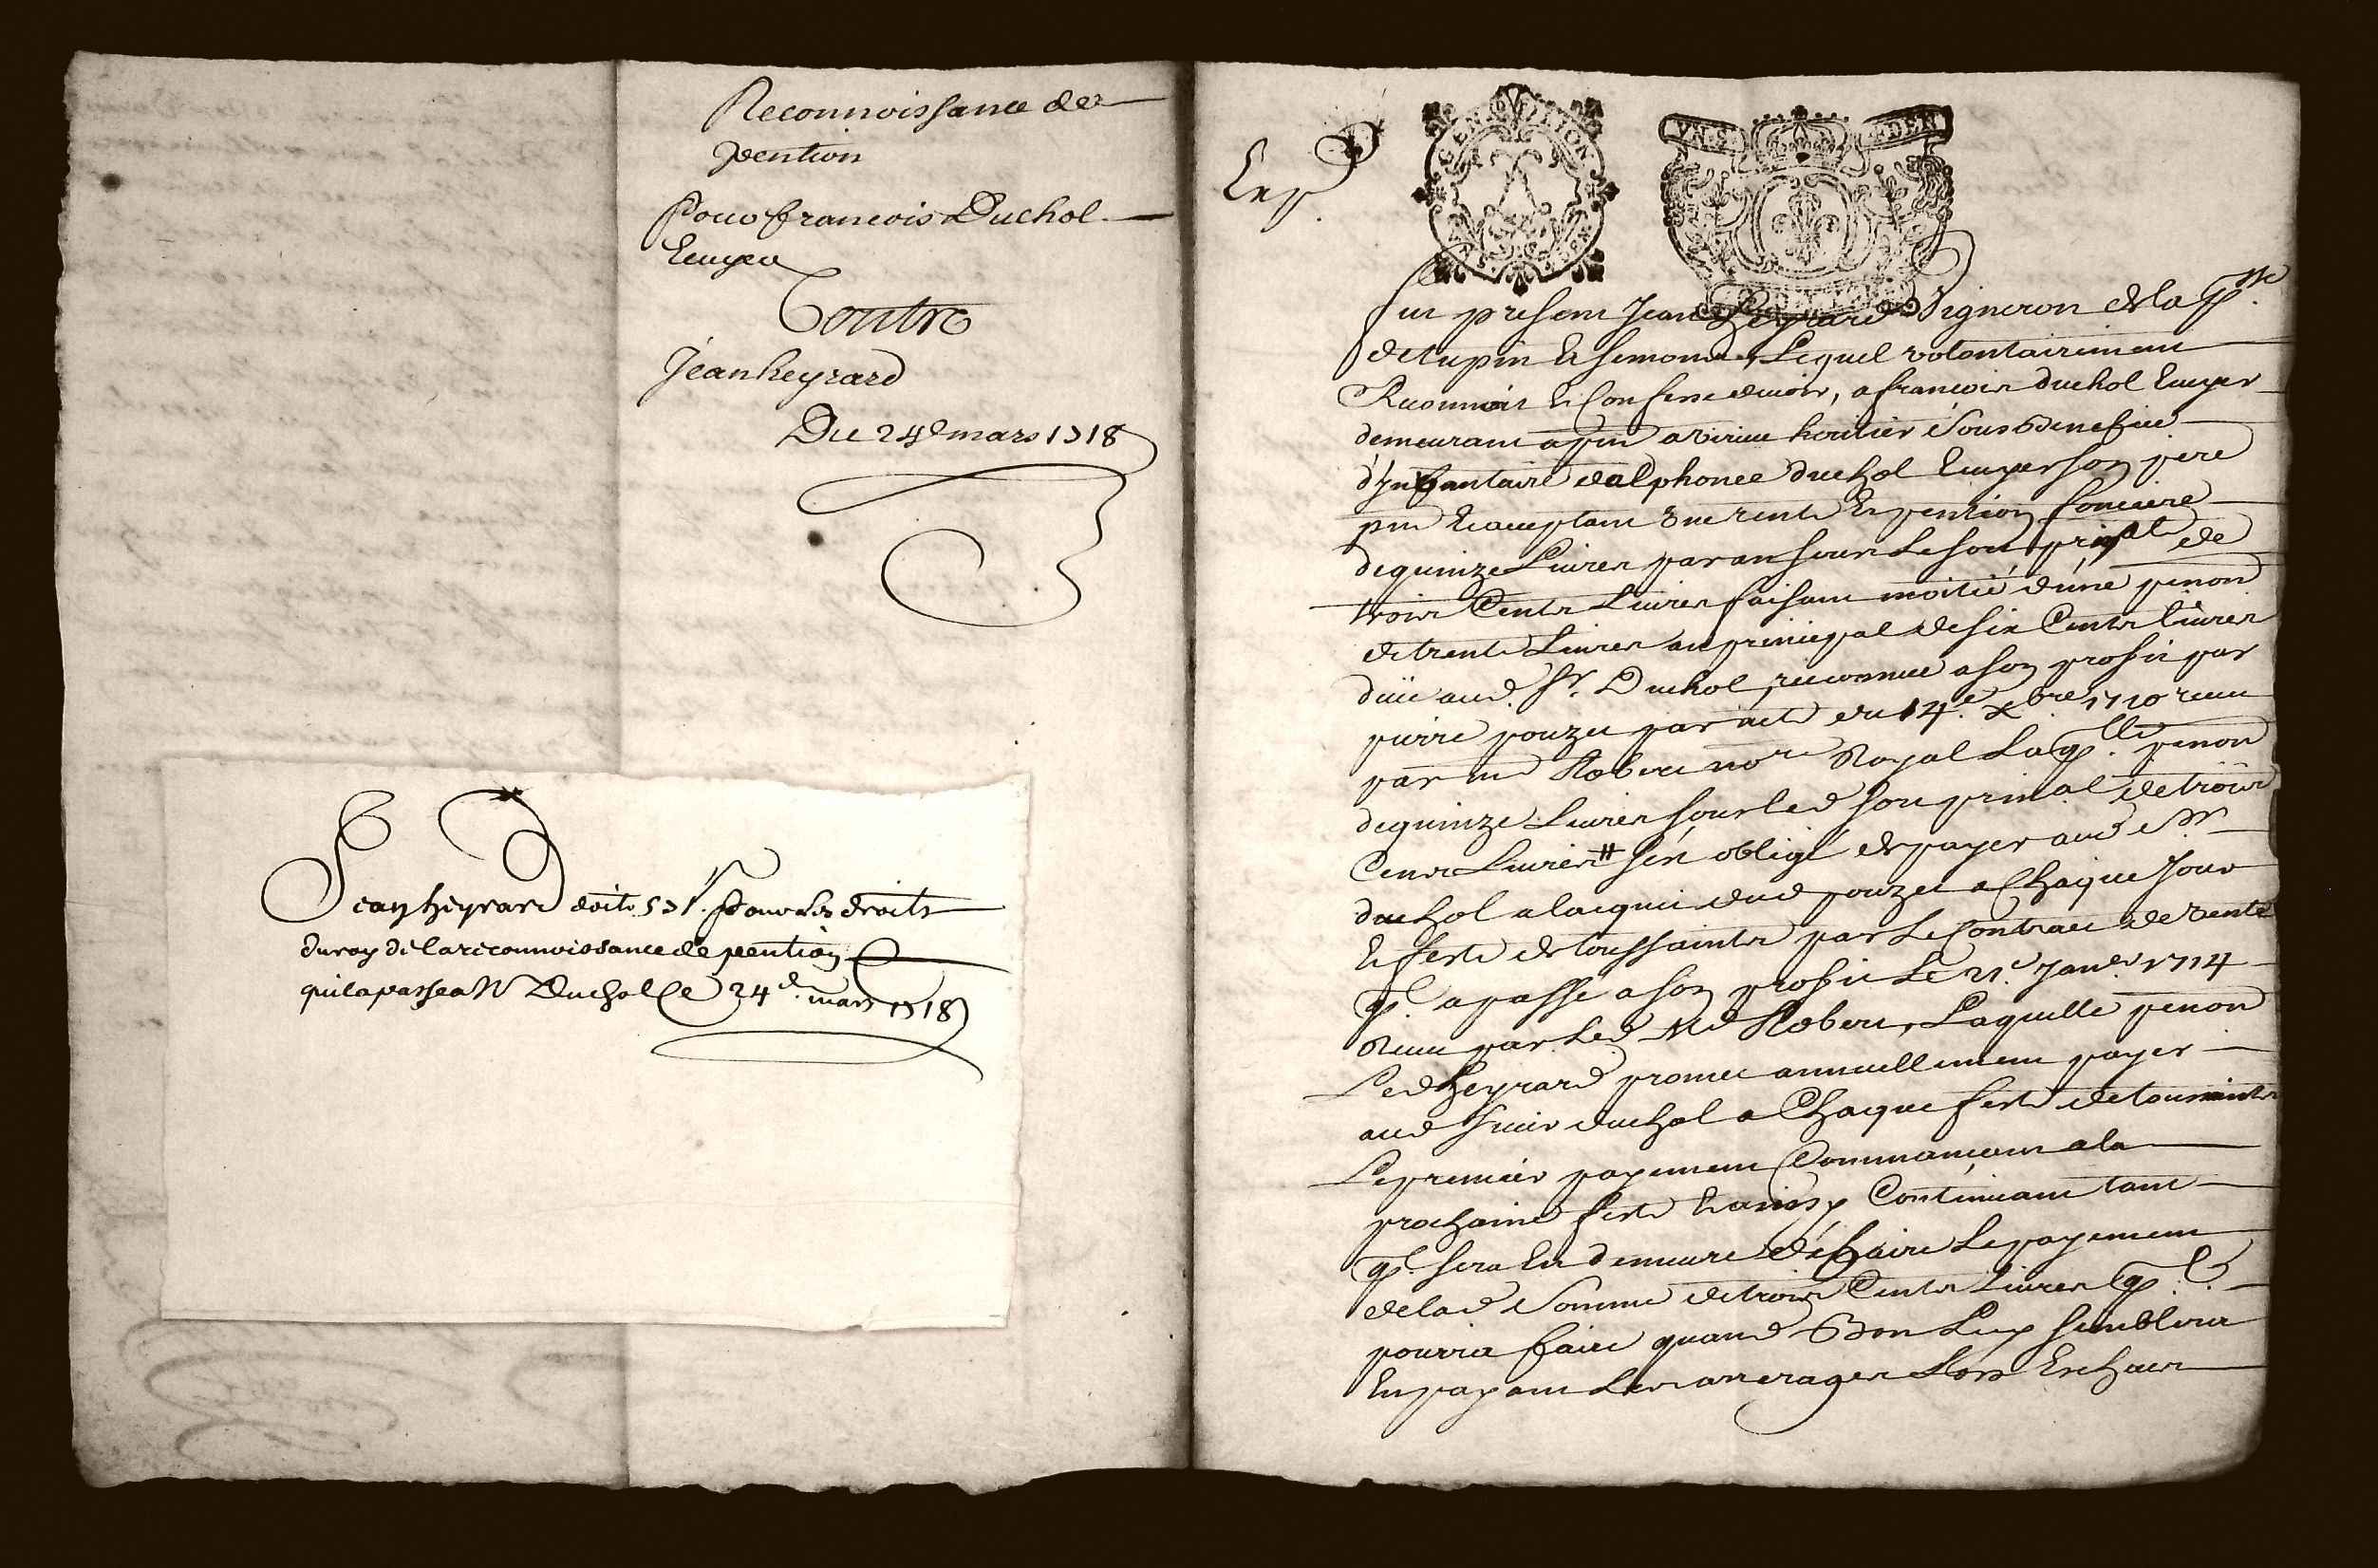 Reconnoissance de
pention
Pour francois Duchol
Ecuyer
Contre
Jean heyrard
Du 24e mars 1718
Jean heyrard doit pour les droits
du roy de la reconnoissance de pention
qu'il a passe a Mr Duchol le 24e. mars 1718
Exp.
GEN
VN S. EDEN
fut present Jean heyrard Vigneron de la psse
de tupin & semond, Lequel volontairement
Reconnoit & Confesse devoir, a francois duchol Ecuyer
demeurant a heritier Sous Benefice
d'Inventaire d'alphonce duchol Ecuyer son pere
pnt & acceptant Une rente & pention fonciere
de quinze Livres par an sous le sort prinpal de
trois Cents Livres faisant moitié d'une penon
de trente Livres au principal de six Cents livres
düe aud. Sr. Duchol, reconnue a son profit par
pierre pouzet par acte du 14e. xbre 1710 receu
par me Robert nore Royal Laqlle. penon
de quinze Livres sous led sort prinal de trois
Cents Livres # s'est obligé de payer aud Sr
duchol a lacquit dud pouzet a Chaque Jour
& feste de toussaints par Le Contract de vente
ql. a passé a son profit Le 21e. Janer. 1714
Receu par Led. Me Robert, Laquelle penon
Led heyrard promet annuellement payer
aud Sieur duchol a Chaque feste de toussaints
Le premier payement Commançant a la
prochaine feste & ainsy Continuant tant
ql. sera En demeure de faire Le payement
de lad Somme de trois Cents Livres ql.
pourra faire quand Bon Luy semblera
En payant Les arrerages Lors Escheus